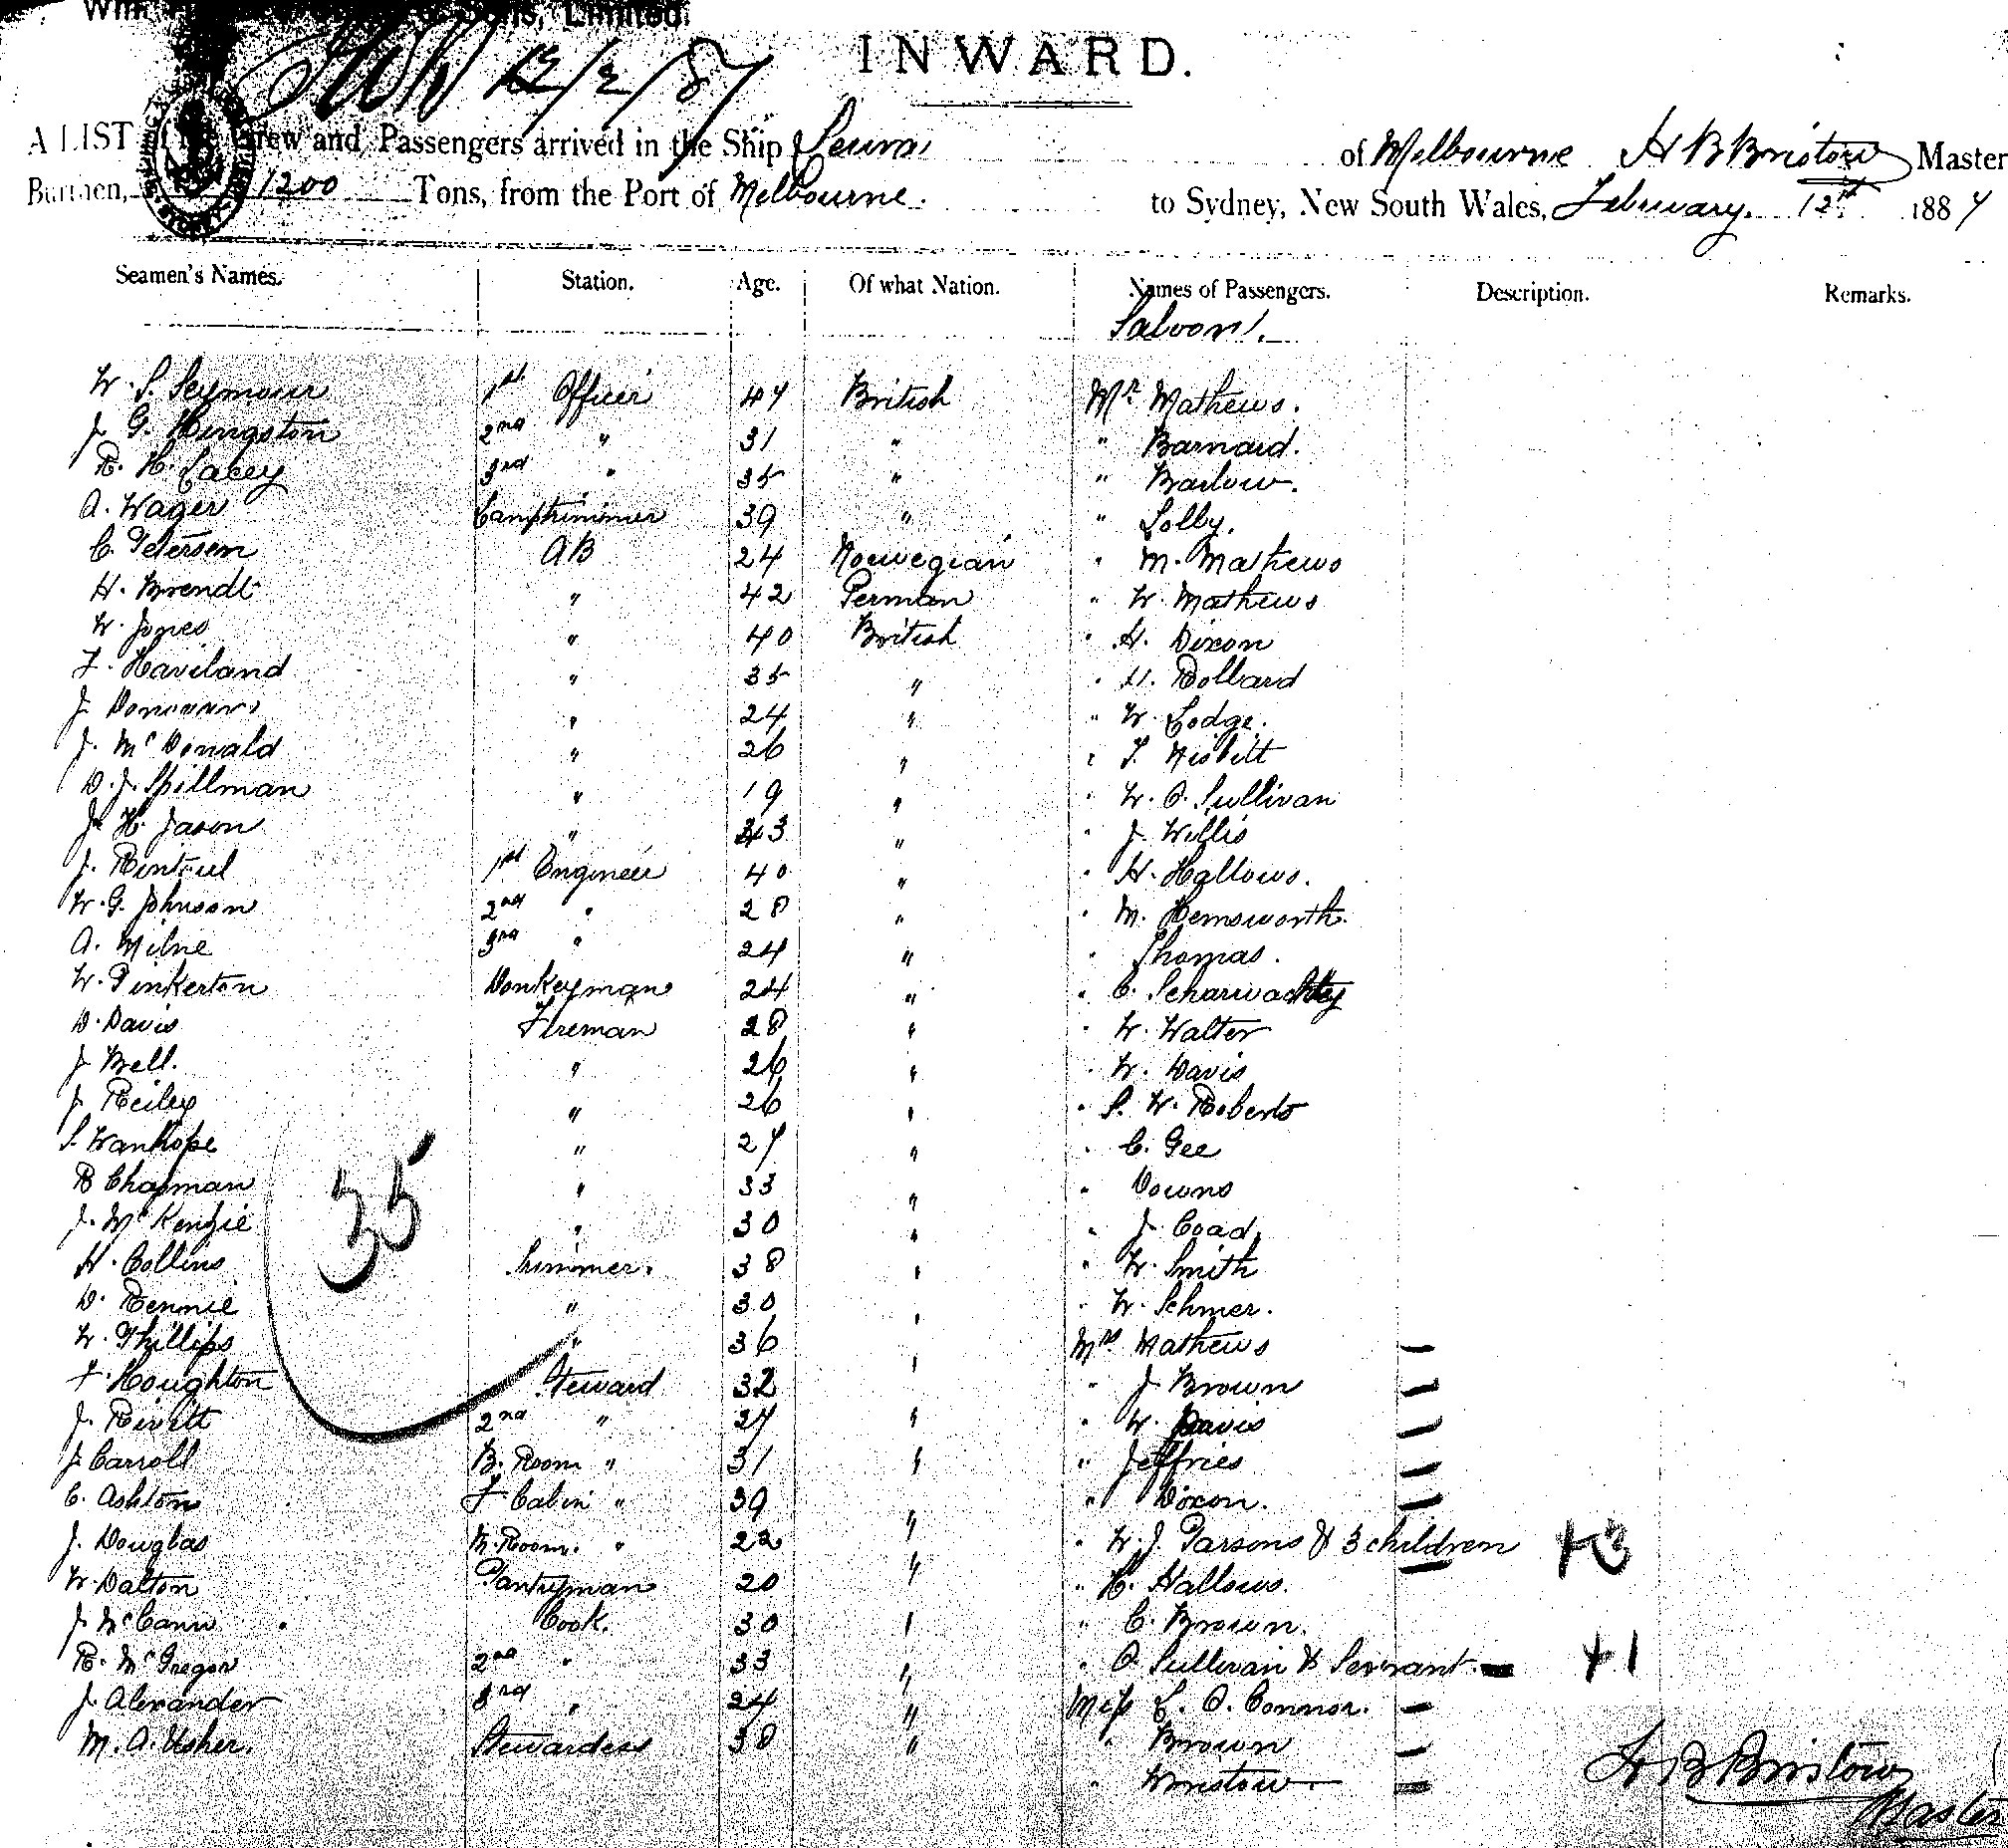 Sons, Limited.
12/2/87
INWARD.
A LIST of the Crew and Passengers arrived in the Ship of Melbourne H B Bristow Master
Burthen, 1200 Tons, from the Port of Melbourne. to Sydney, New South Wales, February 12th 1887
Seamen's Names. Station. Age. Of what Nation. Names of Passengers. Description. Remarks.
Saloon.
W. S. Seymour 1st Officer 47 British Mr Mathews.
J. G. Hingston 2nd " 31 " " Barnard.
R. H. Lacey 3rd " 35 " " Barlow.
A. Wager Lamptrimmer 39 " " Solby.
C. Petersen AB 24 Norwegian " M. Mathews
H. Brendt " 42 German " W. Mathews
W. Jones " 40 British " H. Dixon
F. Haviland " 35 " " H. Bollard
J. Donovan " 24 " " W. Lodge.
J. McDonald " 26 " " T. Nisbett
D. J. Spillman " 19 " " W. O. Sullivan
J. H. Jason " 43 " " J. Willis
J. Rintoul 1st Engineer 40 " " H. Hallows.
W. G. Johnson 2nd " 28 " " M. Hemsworth.
A. Milne 3rd " 24 " " Thomas.
W. Pinkerton Donkeyman 24 " " C.
D. Davis Fireman 28 " " W. Walter
J. Bell. " 26 " " W. Davis
J. Reiley " 26 " " S. W. Roberts
S. Wanhope " 27 " " C. Gee
B Chapman " 33 " " Downs
J. McKenzie " 30 " " J. Coad
H. Collins Trimmer. 38 " " W. Smith
D. Rennie " 30 " " W. Schmer.
W. Phillips " 36 " Mrs Mathews
F. Houghton Steward 32 " " J. Brown
J. Rivett 2nd " 27 " " W. Davis
J. Carroll B. Room " 31 " " Jeffries
C. Ashton F Cabin " 39 " " Dixon.
J. Douglas M. Room. " 22 " " W. J. Parsons & 3 children +3
W. Dalton Pantryman 20 " " H. Hallows.
J. McCann Cook. 30 " " C. Brown.
R. McGregor 2nd " 33 " " O. Sullivan & Servant +1
J. Alexander 3rd " 24 " Miss L. O. Connor.
M. A. Usher. Stewardess 38 " " Brown
" Bristow.
35
H B Bristow
Master